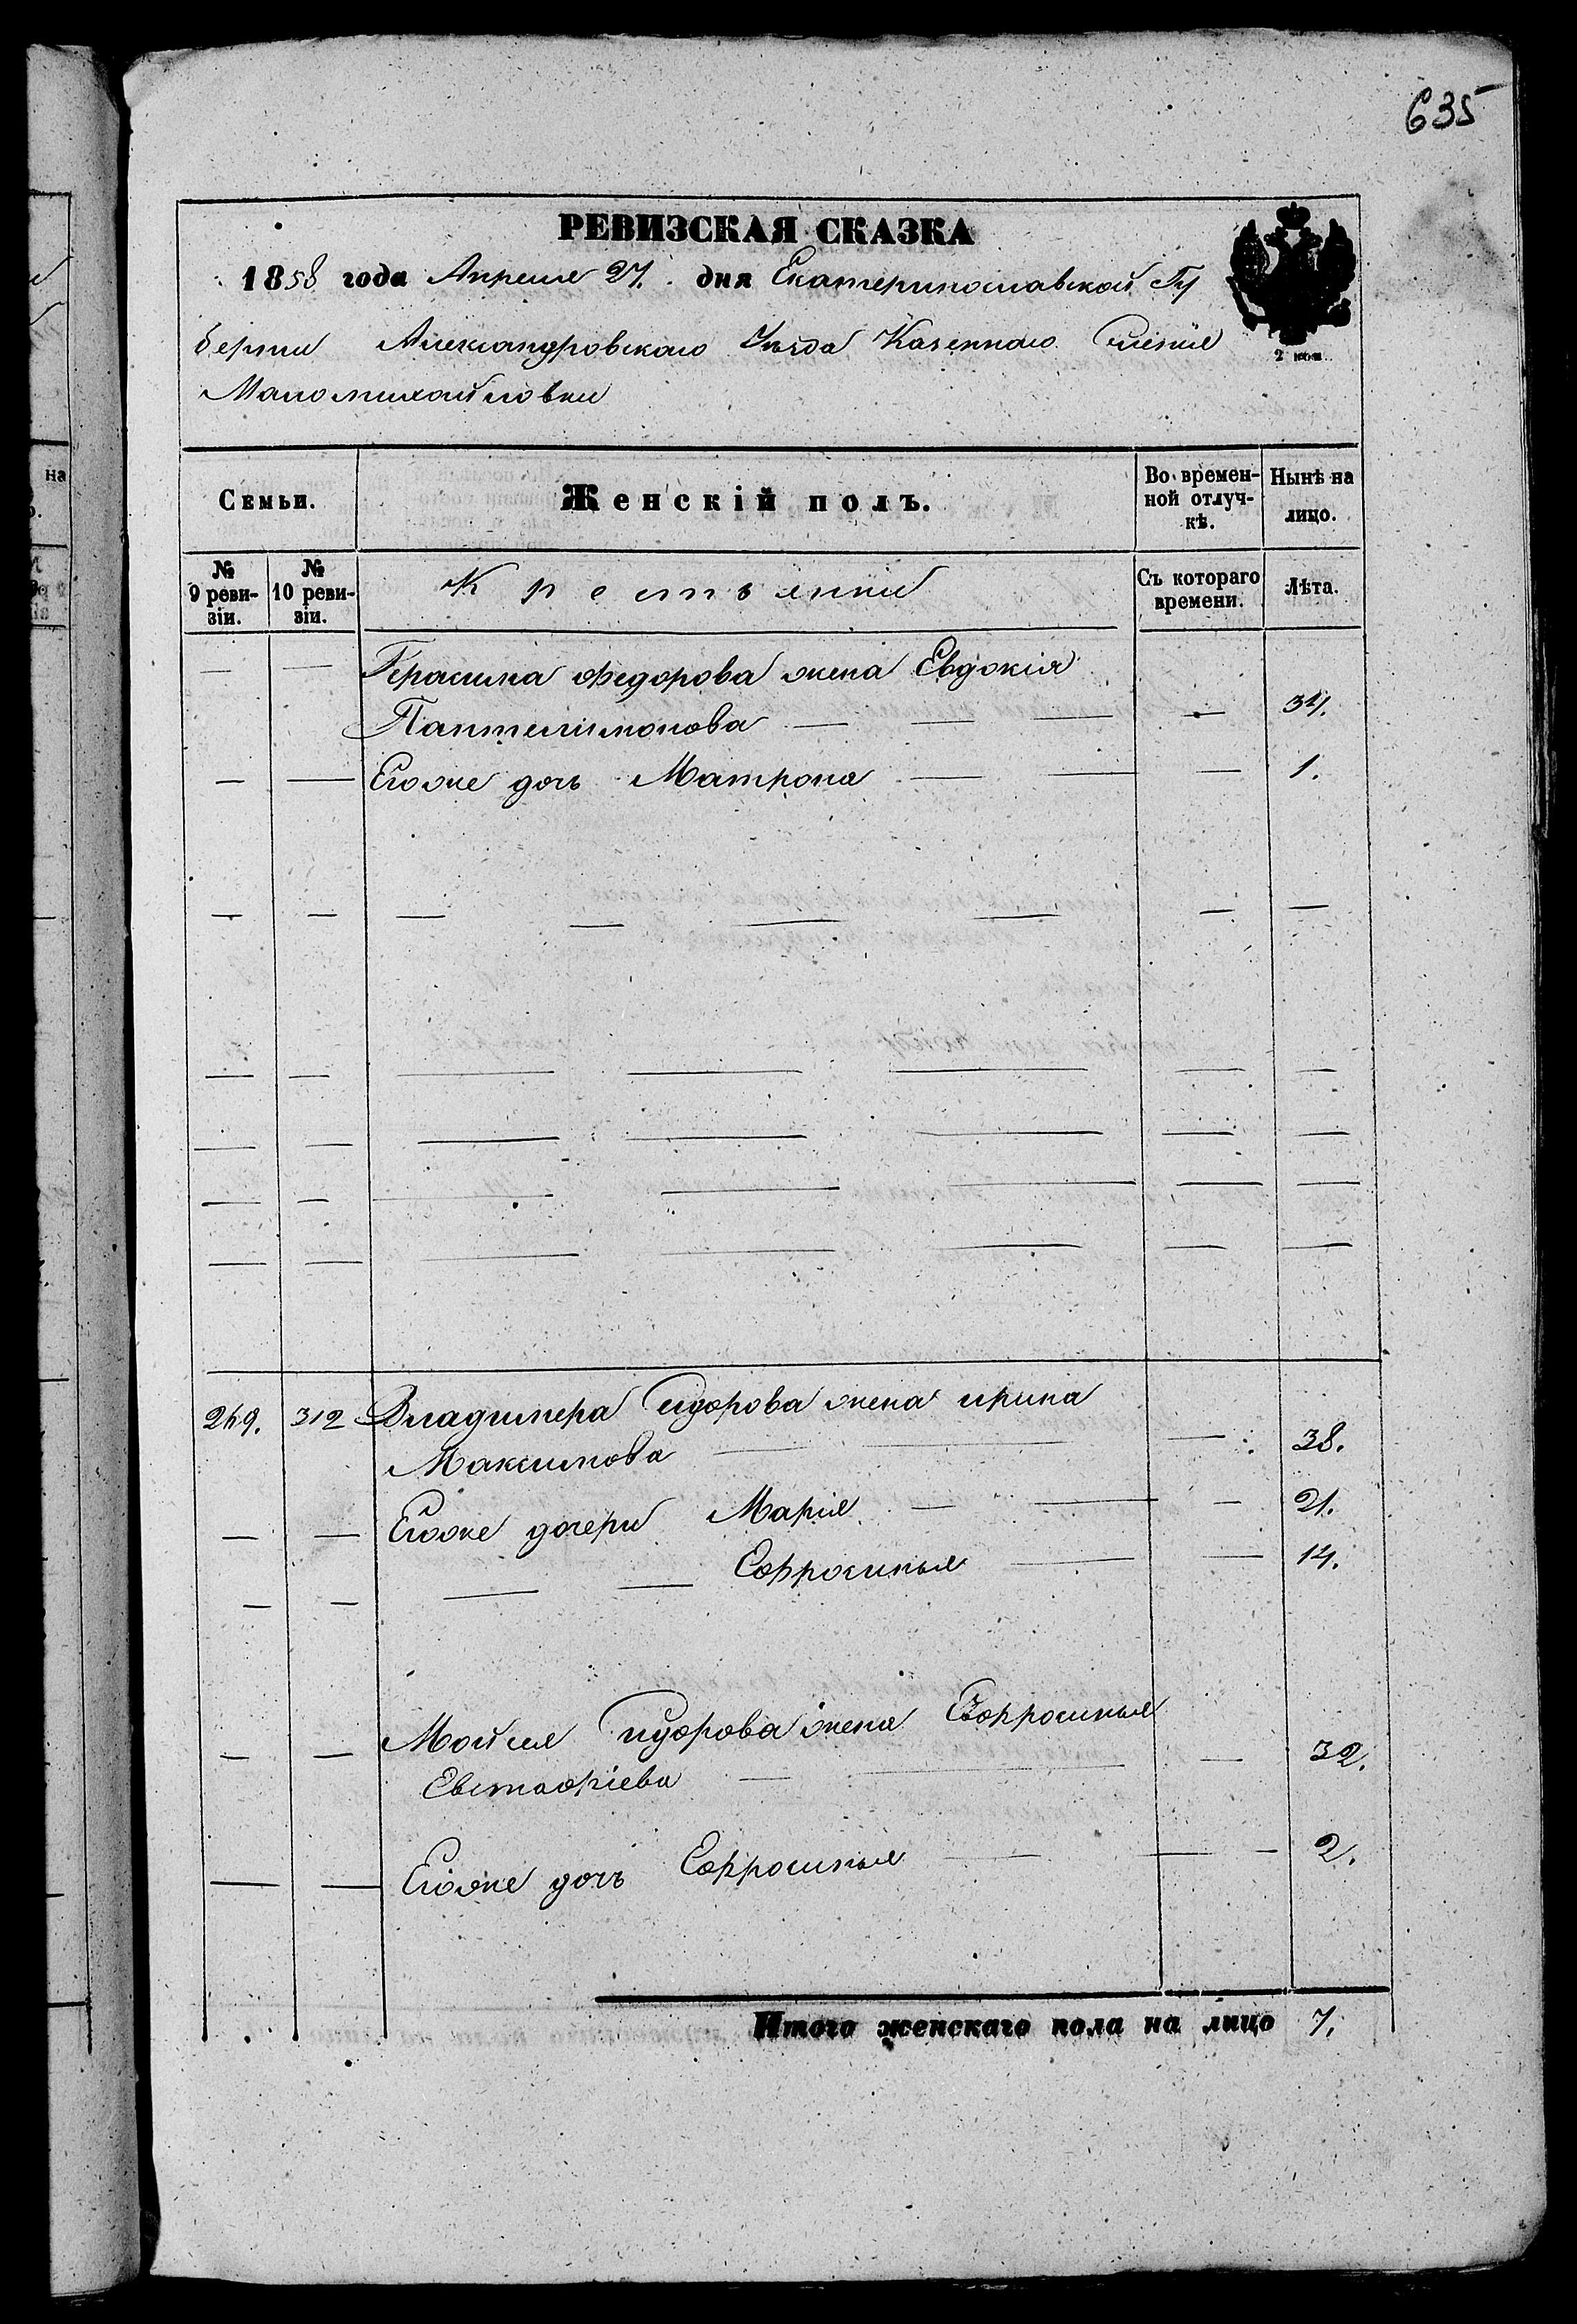 635
РЕВИЗСКАЯ СКАЗКА
1858 года Апреля 27. дня Екатеринославской Гу
берни Александровскаго Уѣзда Казеннаго Сиенія
Маломихайловки
2 коп.
Семьи. Женскій полъ. Во временной отлучкѣ. Нынѣ на лицо.
№ 9 ревизіи. № 10 ревизіи. Крестьянки Съ котораго времени. Лѣта.
— — Герасима Федорова жена Евдокія
Пантелимонова — — — — 34.
— — Егоже дочь Матрона — — — 1.
— — — — — — — —
— — — — — — —
— — — — — — —
— — — — — — —
— — — — — — —
249. 312 Владимера Сидорова жена ирина
Максимова — — — 38.
— — Егоже дочери Марія — — — 21.
— — — — Ефросинья — — 14.
— — Мойсея Сидорова жена Ефросинья
Евстафіева — — — 32.
— — Егоже дочь Ефросинья — — — 2.
Итого женскаго пола на лицо 7.
на